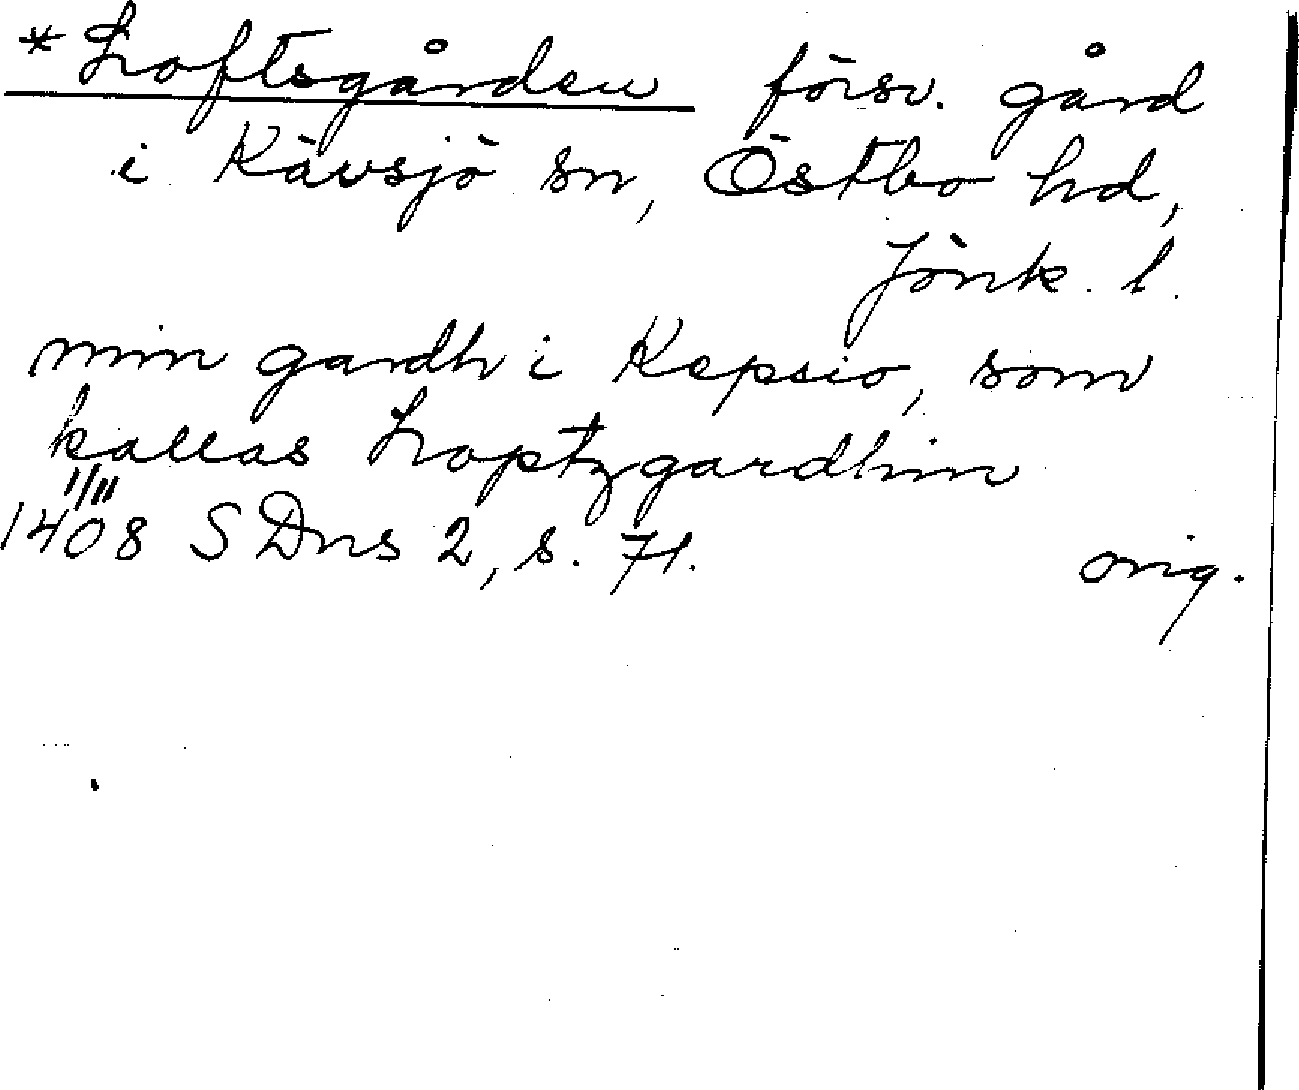 *Loftsgården försv. gård
i Kävsjö sn, Östbo hd,
Jönk. l.
min gardh i Kepsio, som
kallas Loptzgardhin
1/11
1408 SDns 2, s. 71. orig.